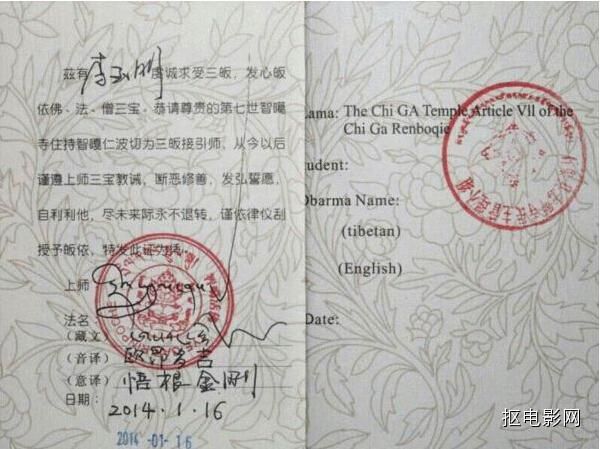 兹有李玉刚虔诚求受三皈，发心皈
依佛、法、僧三宝、恭请尊贵的第七世智噶
寺住持智噶仁波切为三皈接引师，从今以后
谨遵上师三宝教诫，断恶修善，发弘誓愿，
自利利他，尽未来际永不退转，谨依律仪刮
授予皈依，特发此证为
上师
法名：
（藏文）
（音译）
（意译）悟根金刚
日期：
2014.1.16
2014-01-16
Lama: The Chi GA Temple Article Vll of the
Chi Ga Renboqie
Student:
Dbarma Name:
(tibetan)
(English)
Date:
抠电影网